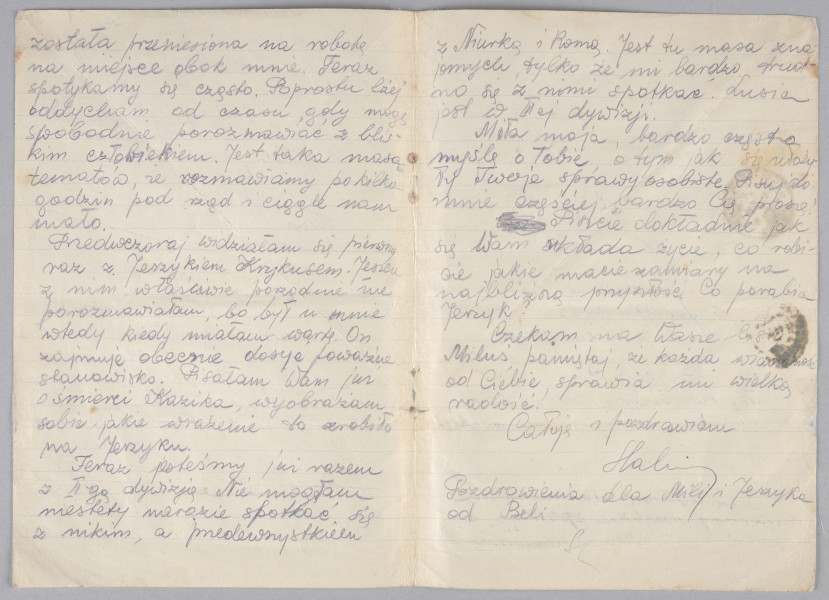 została przeniesiona na robotę
na miejsce obok mnie. Teraz
spotykamy się często. Poprostu lżej
oddycham od czasu, gdy mogę
swobodnie porozmawiać z blis-
kim człowiekiem. Jest taka masa
tematów, że rozmawiamy po kilka
godzin pod rząd i ciągle nam
mało.
Przedwczoraj widziałam się pierwszy
raz z Jerzykiem Krzkusem. Jeszcze
z nim właściwie porządnie nie
porozmawiałam, bo był u mnie
wtedy kiedy miałam wartę. On
zajmuje obecnie dosyć poważne
stanowisko. Pisałam Wam już
o śmierci Kazika, wyobrażam
sobie jakie wrażenie to zrobiło
na Jerzyku.
Teraz jesteśmy już razem
z II-gą dywizją. Nie mogłam
niestety narazie spotkać się
z nikim, a przedewszystkiem
z Niurką i Romą. Jest tu masa zna-
jomych, tylko że mi bardzo trud-
no się z nimi spotkać. Lusia
jest w II ej dywizji.
Miła moja, bardzo często
myślę o Tobie, o tym jak się
Ty Twoje sprawy osobiste. Pisuj do
mnie częściej bardzo Cię proszę!
Piszcie dokładnie jak
się Wam układa życie, co robi-
cie jakie macie zamiary na
najbliższą przyszłość. Co porabia
Jerzyk
Czekam na Wasze
Miluś pamiętaj, że każda wiadomość
od Ciebie, sprawia mi wielką
radość.
Całuję i pozdrawiam
Hali
Pozdrowienia dla Mili i Jerzyka
od Beli